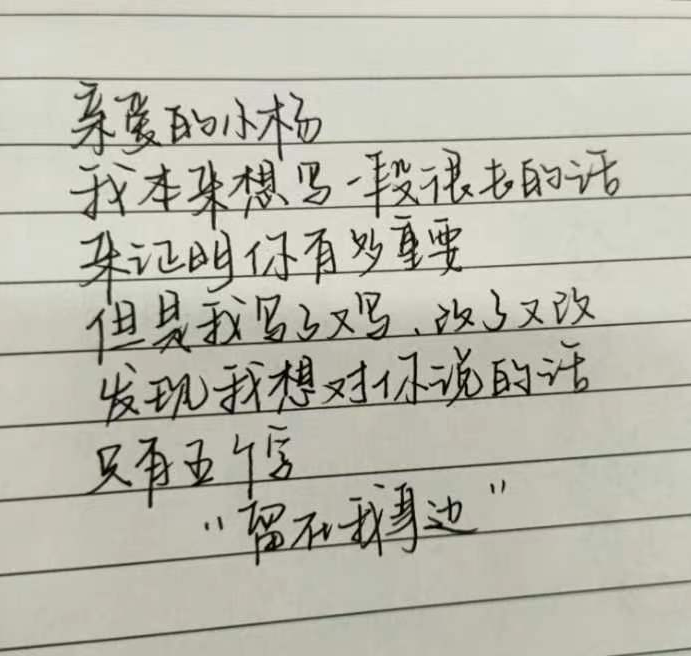 亲爱的小杨
我本来想写一段很长的话
来证明你有多重要
但是我写了又写、改了又改
发现我想对你说的话
只有五个字
“留在我身边”